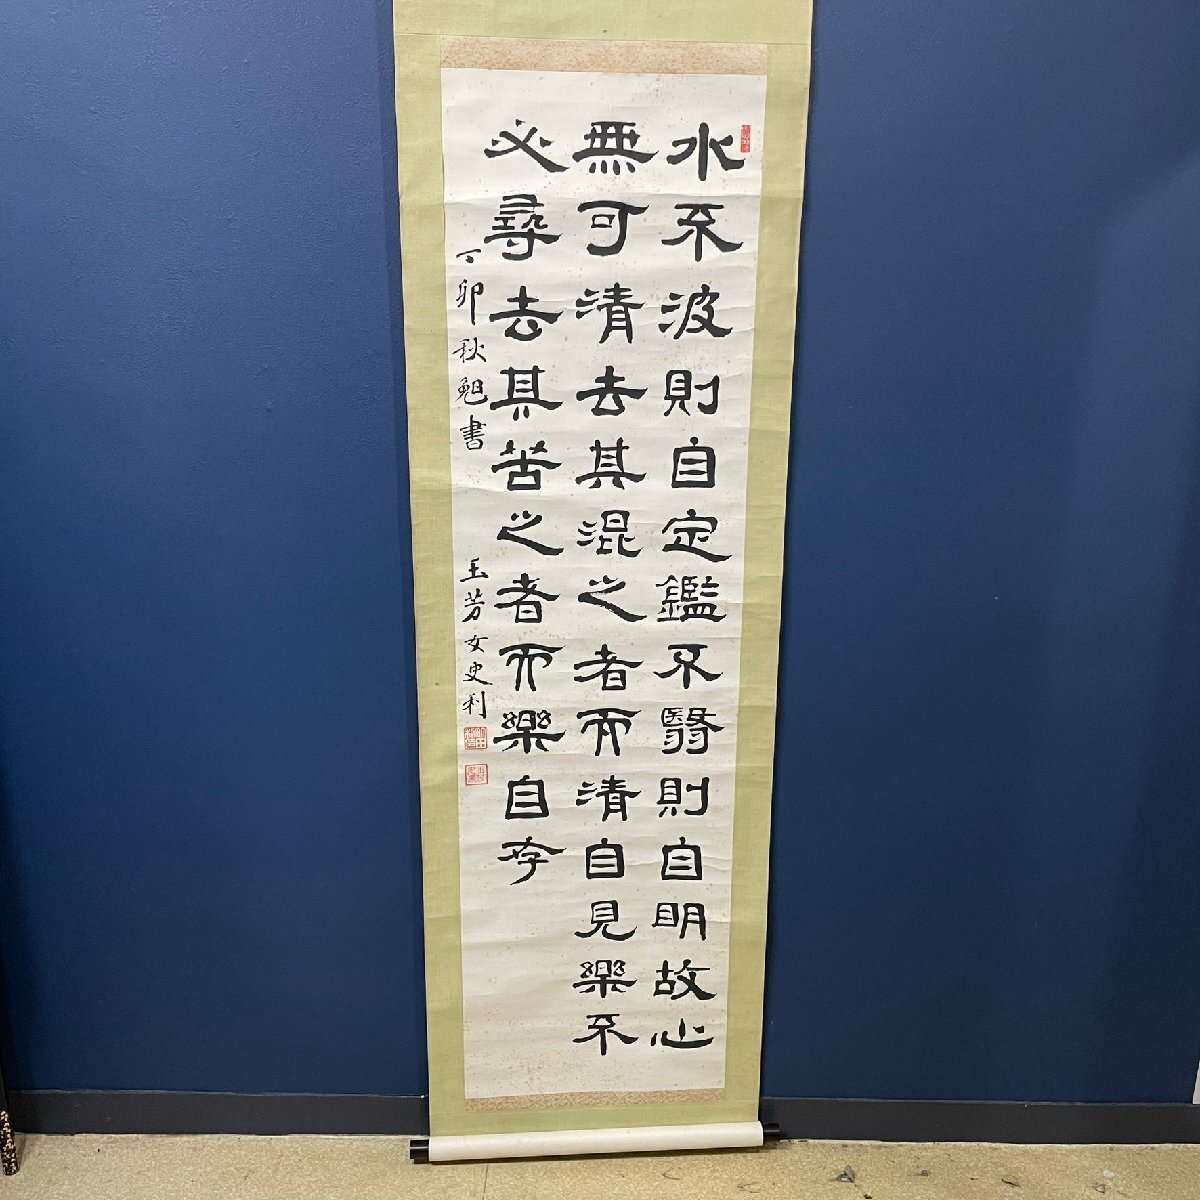 水不波則自定鑑不翳則自明故心
無可清去其混之者而清自見樂不
必尋去其苦之者而樂自存
丁卯秋勉書
玉芳女史利